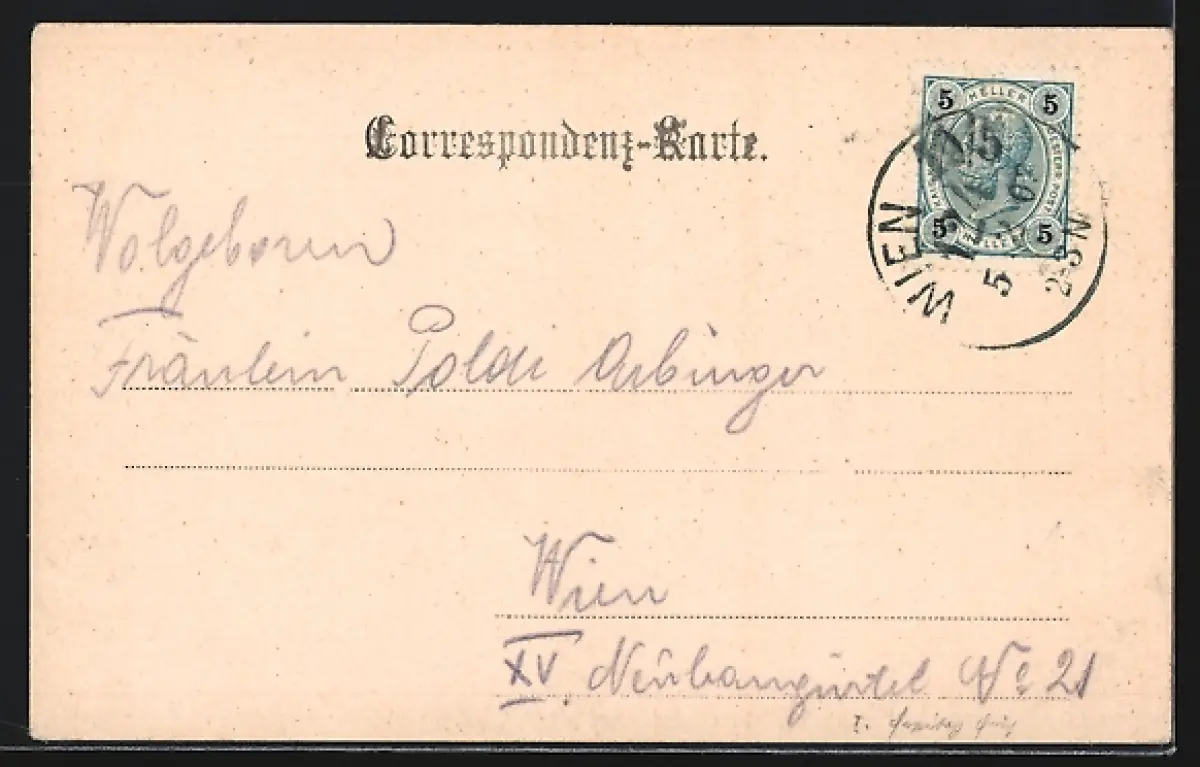 Correspondenz-Karte.
5 HELLER 5
5 HELLER 5
WIEN
5
2-3N
Wolgeboren
Fräulein Poldi
Wien
XV Neubaugürtel No 21